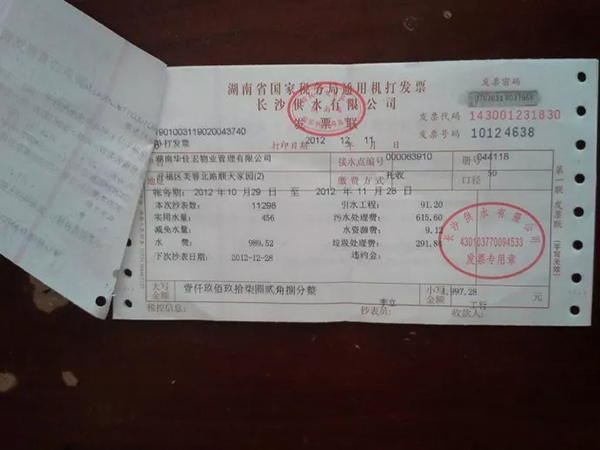 湖南省国家税务局通用机打发票
长沙供水有限公司
发票联
发票密码
发票代码 143001231830
发票号码 10124638
1901003119020043740
打印日期 2012 年 12 月 11 日
机打发票
湖南华佳宏物业管理有限公司 接水点编号 000063910 册号 044118
开福区芙蓉北路顺天家园(2) 缴费方式 托收 口径 50
帐务期: 2012 年 10 月 29 日 至 2012 年 11 月 28 日
本次抄表数: 11298 引水工程: 91.20
实用水量: 456 污水处理费: 615.60
减免水量: 水资源费: 9.12
水 费: 989.52 垃圾处理费: 291.84
下次抄表日期: 2012-12-28 违约金:
大写金额 壹仟玖佰玖拾柒圆贰角捌分整 小写金额 1,997.28 元
税控信息: 抄表员: 李立 收款人: 工行
第一联 发票联 (手写无效)
长沙供水有限公司
430103770094533
发票专用章